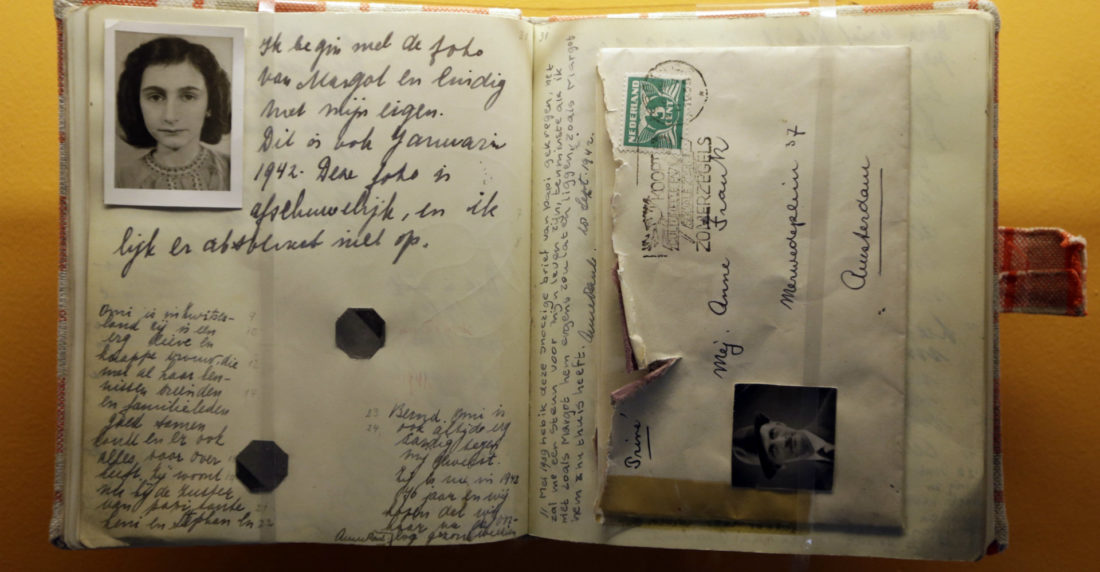 Ik begin met de foto
van Margot en eindig
met mijn eigen.
Dit is ook Januari
1942. Deze foto is
afschuwelijk, en ik
lijk er absoluut niet op.
Omi is in Zwitser-
land zij is een
erg lieve en
knappe vrouw, die
met al haar ken-
nissen vrienden
en familieleden
goed samen
en er ook
alles voor over
heeft, zij woont
nu bij de zuster
van papi tante
Leni en Stephan en
Bernd. Omi is
ook altijd erg
aardig tegen
mij geweest.
Zij is nu in 1942
76 jaar en wij
hopen dat wij
haar na de oor-
log gezond
31
11 Mei 1939 heb ik deze snoezige brief van papi gekregen, het
zal me een steun voor mijn leven zijn, tenminste als ik
niet zoals Margot hem ergens zou laten liggen, zoals Margot
hem thuis heeft. Anne Frank. 28 sept. 1942.
NEDERLAND
5
CENT
ZOMERZEGELS
Mej. Anne Frank
Merwedeplein 37
Amsterdam
Privé